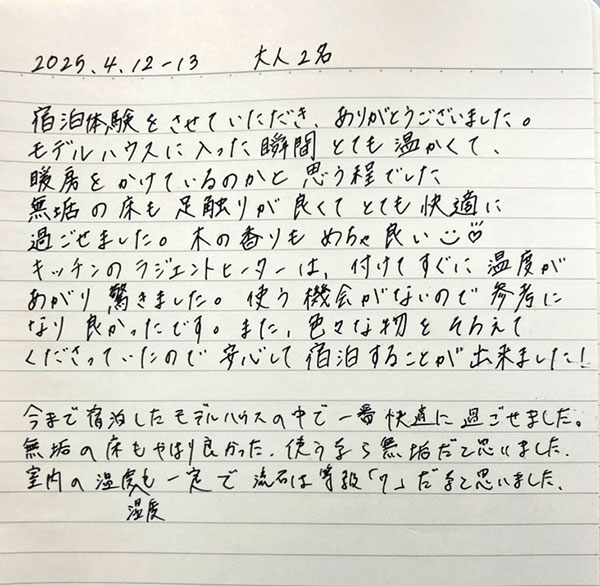 2025.4.12-13 大人2名
宿泊体験をさせていただき、ありがとうございました。
モデルハウスに入った瞬間とても温かくて、
暖房をかけているのかと思う程でした
無垢の床も足触りが良くてとても快適に
過ごせました。木の香りもめちゃ良い
キッチンのラジエントヒーターは、付けてすぐに温度が
あがり驚きました。使う機会がないので参考に
なり良かったです。また、色々な物をそろえて
くださっていたので安心して宿泊することが出来ました!
今まで宿泊したモデルハウスの中で一番快適に過ごせました。
無垢の床もやはり良かった。使うなら無垢だと思いました。
室内の温度も一定で流石は等級「7」だなと思いました。
湿度